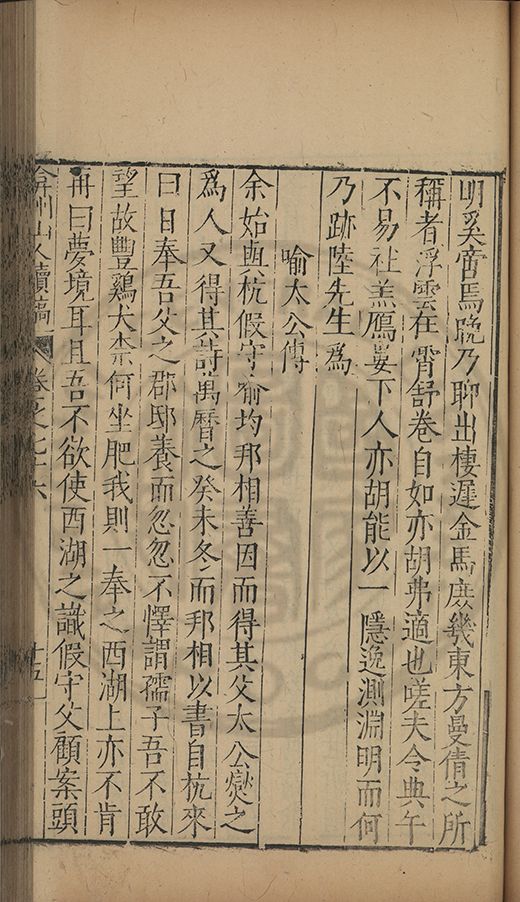 明奚啻焉晚乃聊出棲遲金馬庶幾東方曼倩之所
稱者浮雲在霄舒卷自如亦胡弗適也嗟夫令典午
不易社羔鴈嬰下人亦胡能以一隱逸測淵明而何
乃跡陸先生為
喻太公傳
余始與杭假守喻均邦相善因而得其父太公燮之
為人又得其詩萬曆之癸未冬而邦相以書自杭來
曰日奉吾父之郡邸養而忽忽不懌謂孺子吾不敢
望故豐鷄犬柰何坐肥我則一奉之西湖上亦不肯
再曰夢境耳且吾不欲使西湖之識假守父顧案頭
弇州山人續稿 卷之七十六 十五